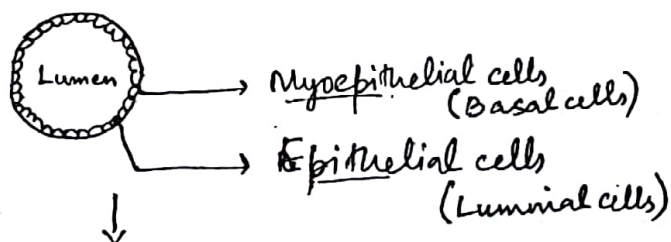 Lumen
Myoepithelial cells
(Basal cells)
Epithelial cells
(Luminal cells)